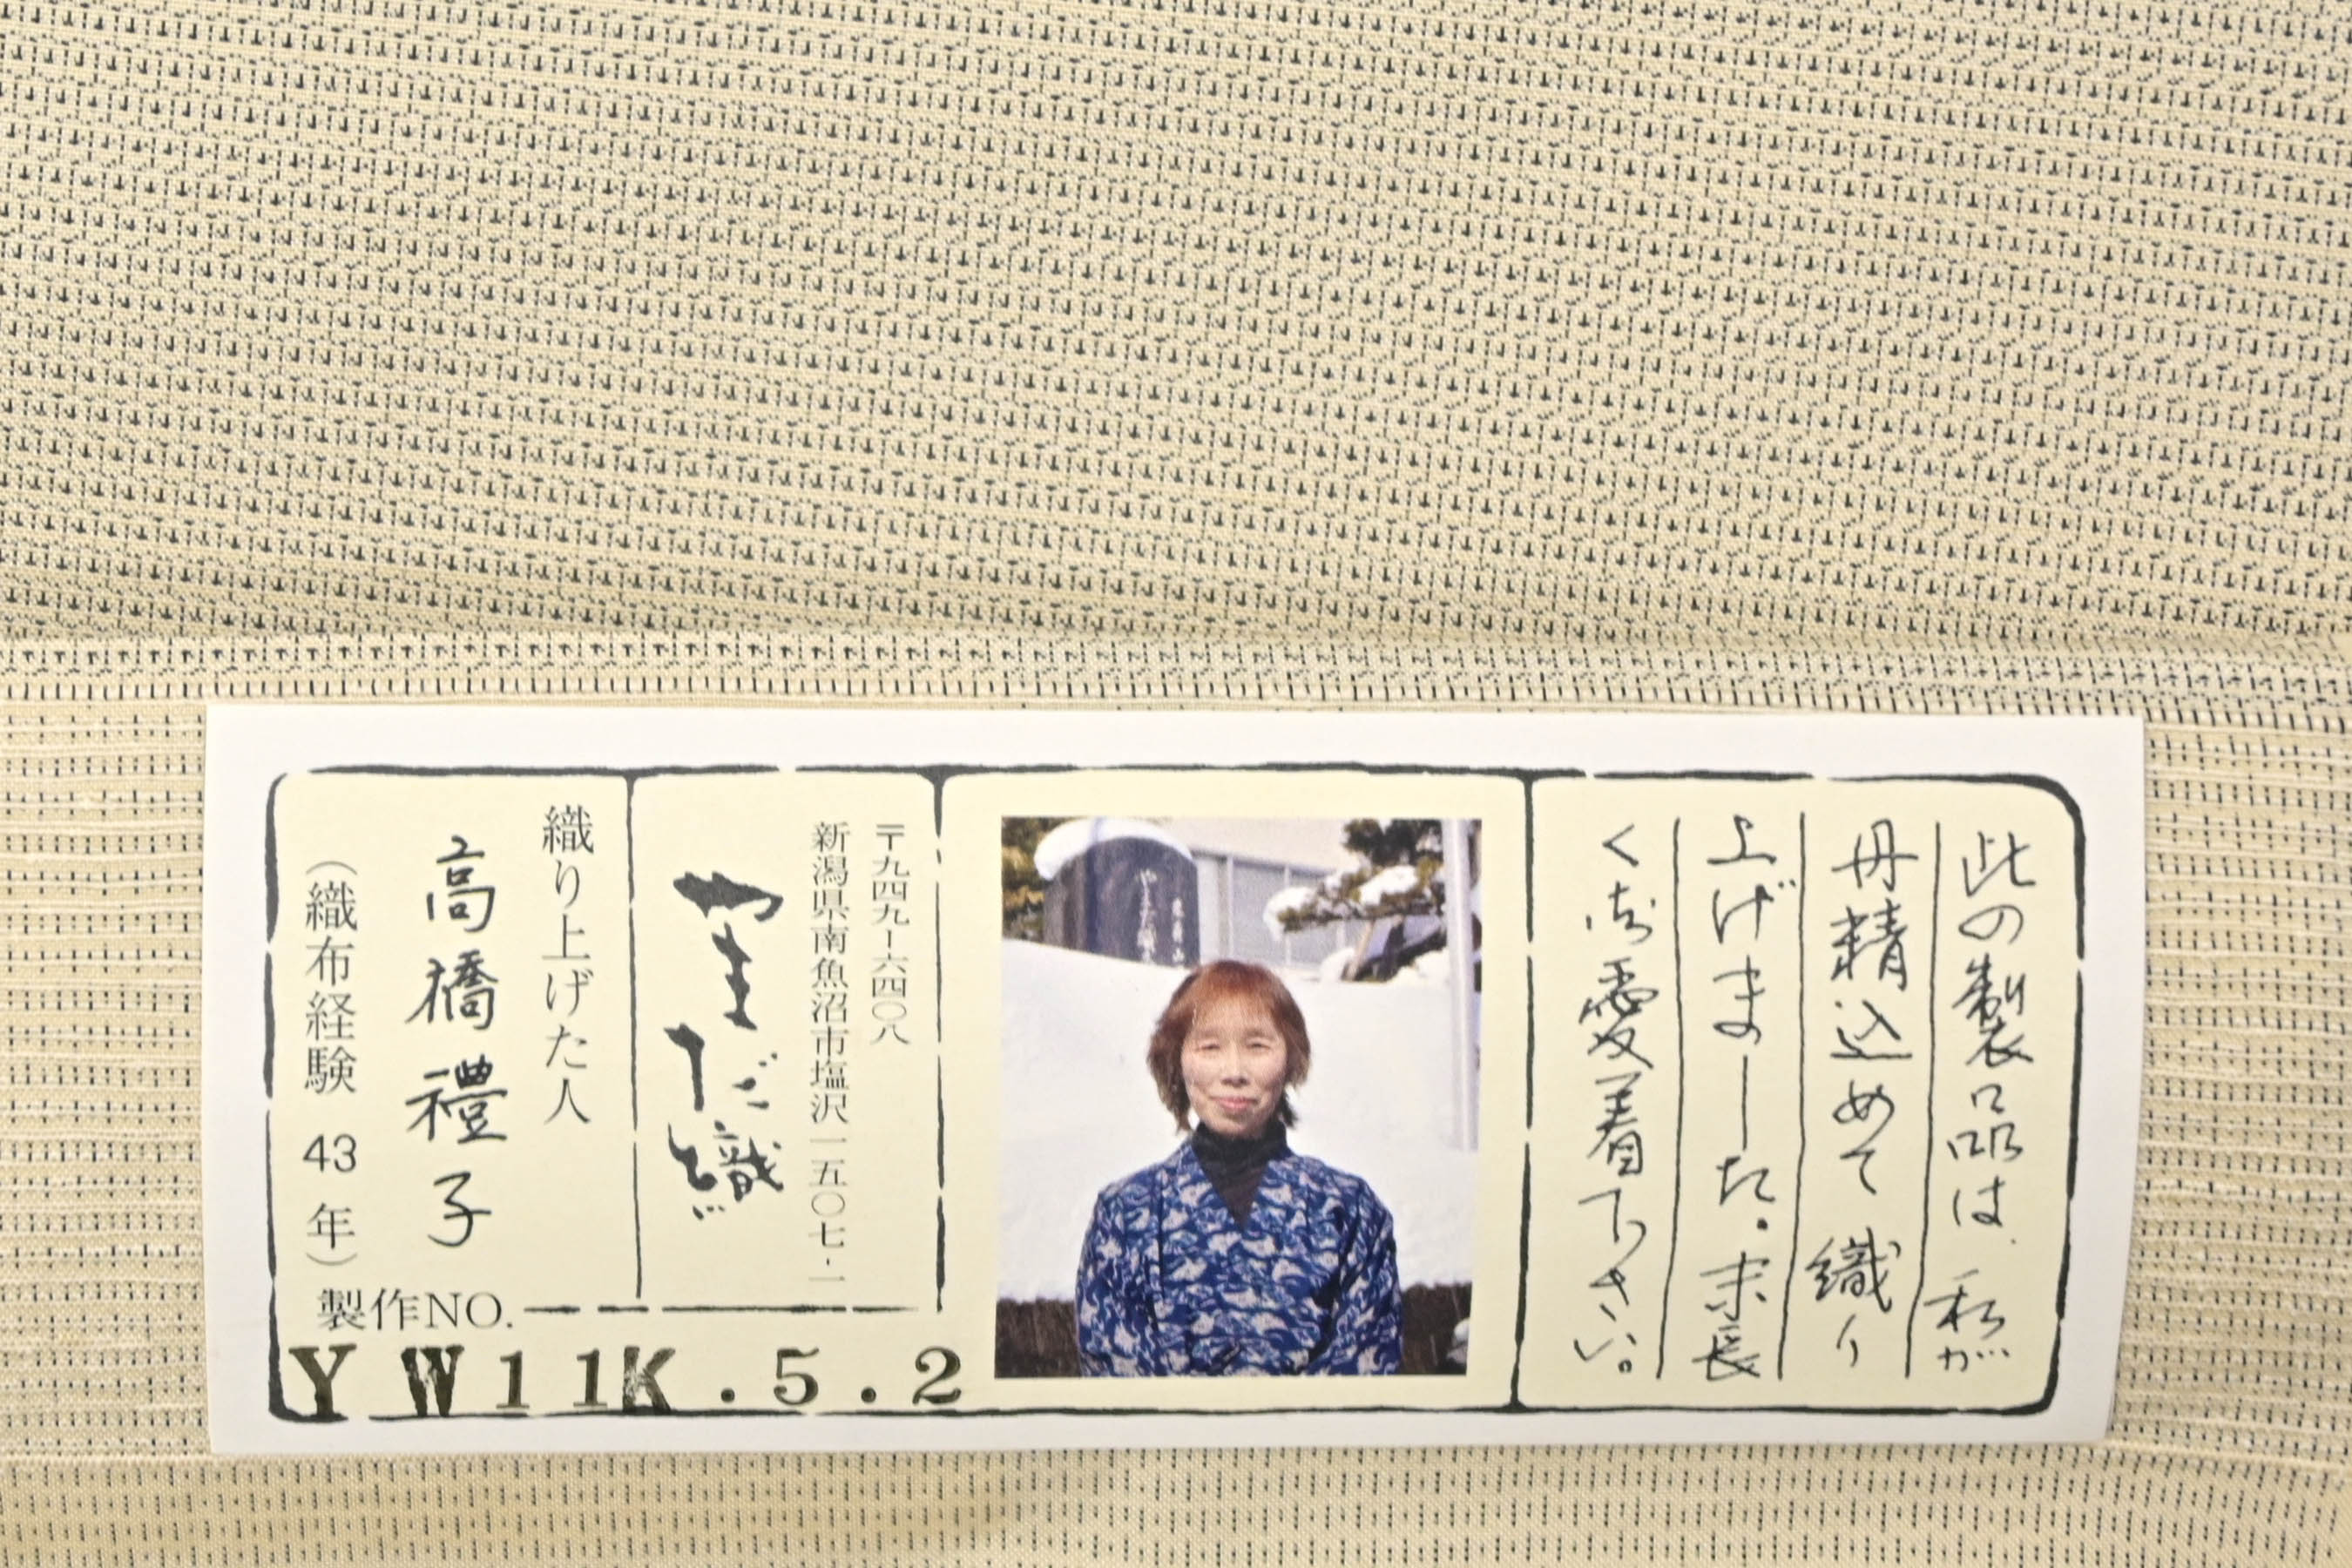 此の製品は、私が
丹精込めて織り
上げました。末長
く御愛着下さい。
〒九四九ー六四〇八
新潟県南魚沼市塩沢一五〇七・一
やまだ織
織り上げた人
高橋禮子
（織布経験 43 年）
製作NO.
YW11K.5.2